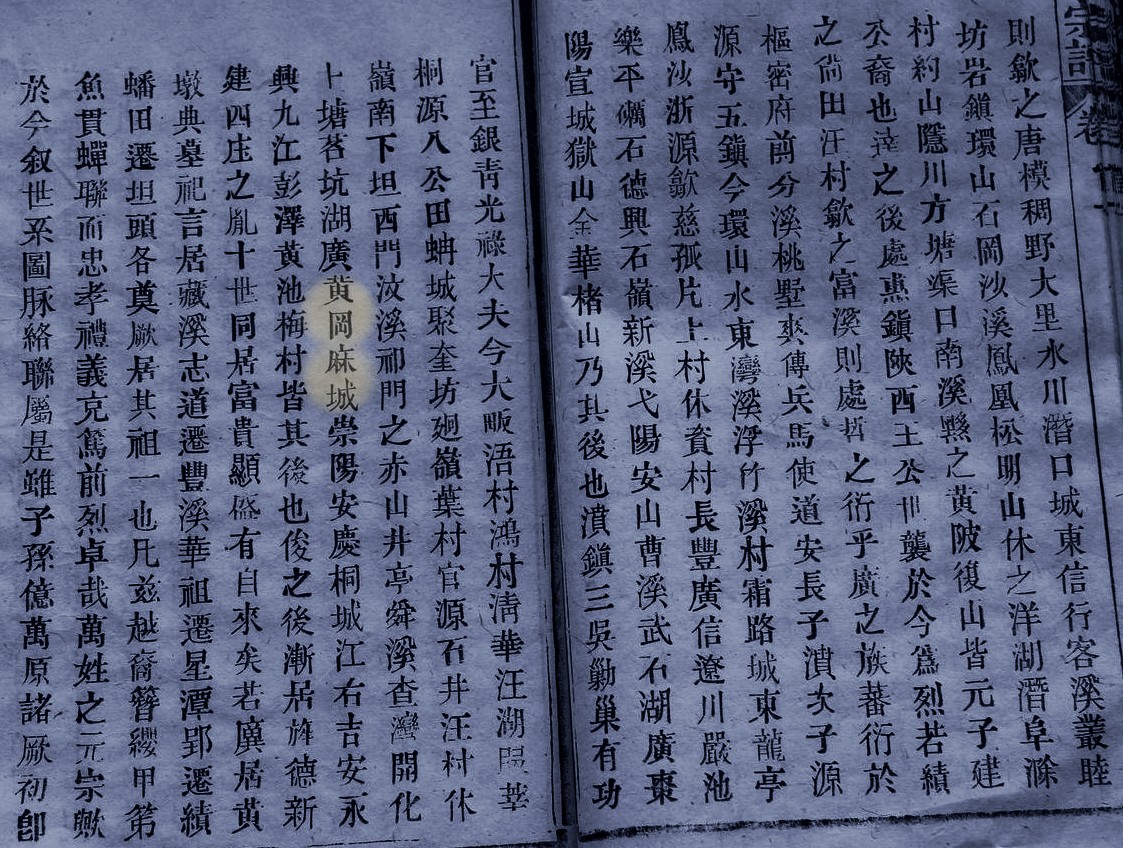 宗譜 卷
則歙之唐模稠野大里水川潛口城東信行客溪叢睦
坊岩鎮環山石岡沙溪鳳凰松明山休之洋湖潛阜滁
村約山隱川方塘渠口南溪縣之黃陂復山皆元子建
公裔也達之後處惠鎮陜西王公世襲於今爲烈若績
之尙田汪村歙之富溪則處哲之衍乎廣之族蕃衍於
樞密府前分溪桃墅爽傳兵馬使道安長子濆次子源
源守五鎮今環山水東灣溪浮竹溪村霜路城東龍亭
鳳沙浙源歙慈孤片上村休資村長豐廣信遼川嚴池
樂平礪石德興石嶺新溪弋陽安山曹溪武石湖廣棗
陽宣城獄山金華楮山乃其後也濆鎮三吳勦巢有功
官至銀靑光祿大夫今大畈浯村鴻村淸華汪湖莘
桐源八公田蚺城聚奎坊廻嶺葉村官源石井汪村休
嶺南下坦西門汶溪祁門之赤山井亭舜溪查灣開化
上塘苔坑湖廣黃岡麻城崇陽安慶桐城江右吉安永
興九江彭澤黃池梅村皆其後也俊之後漸居旌德新
建四庄之胤十世同居富貴顯盛有自來矣若廣居黃
墩典墓祀言居藏溪志道遷豐溪華祖遷星潭郢遷績
蟠田遷坦頭各奠厥居其祖一也凡茲越裔簪纓甲第
魚貫蟬聯而忠孝禮義克篤前烈卓哉萬姓之元宗歟
於今叙世系圖脉絡聯屬是雖子孫億萬原諸厥初卽